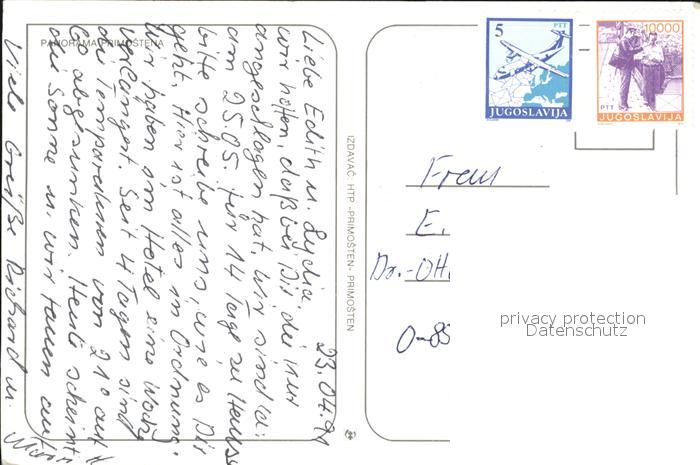 PANORAMA PRIMOŠTENA
23.04.91
Liebe Edith u. Lydia,
wir hoffen, daß bei Dir, die Kur
angeschlagen hat. Wir sind ca.
am 25.05. für 14 Tage zu Hause
bitte schreibe uns, wie es Dir
geht. Hier ist alles in Ordnung.
Wir haben am Hotel eine Woche
verlängert. Seit 4 Tagen sind
die Temperaturen von 21° auf
abgesunken. Heute scheint
die Sonne u. wir tauen auf
Viele Grüße Richard u.
IZDAVAČ: HTP -PRIMOŠTEN- PRIMOŠTEN
5 PTT
JUGOSLAVIJA
10000
PTT
JUGOSLAVIJA
Frau
E.
Dr.-OH.
privacy protection
Datenschutz